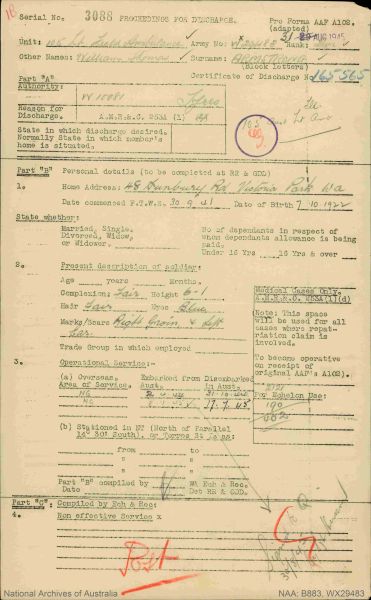 Serial No. 3088 PROCEEDINGS FOR DISCHARGE. Pro Forma AAF A102.
(adapted)
31 AUG 1945
Unit: Field Ambulance Army No. WX29483 Rank:
Other Names: William Thomas Surname: ARMSTRONG
(Block letters)
Certificate of Discharge No. 165565
Part "A"
Authority: W10081
Reason for
Discharge. A.M.R.& O. 253A (1)
State in which discharge desired.
Normally State in which member's
home is situated.
Part "B" Personal details (to be completed at RR & GDD)
1. Home Address: 48 Bunbury Rd Victoria Park WA
Date commenced F.T.W.S. 30.9.41 Date of Birth 7.10.1922
State whether:
Married, Single,
Divorced, Widow,
or Widower.
No of dependants in respect of
whom dependants allowance is being
paid.
Under 16 Yrs 16 Yrs & over
2. Present description of soldier:
Age years Months.
Complexion: Fair Height 6-1
Hair Fair Eyes Blue
Marks/Scars Right Groin & left
Ear.
Trade Group in which employed
Medical Cases Only.
A.M.R.& O. 253A(1)(d)
Note: This space
will be used for all
cases where repat-
riation claim is
involved.
To become operative
on receipt of
original AAF's A102).
3. Operational Service:
(a) Overseas. Embarked from Disembarked
Area of Service. Aust. in Aust.
NG
17.7.45
For Echelon Use:
(b) Stationed in NT (North of Parallel
14° 30' South), or Torres Straits:
from to
" "
" "
Part "B" compiled by WA Ech & Rec.
Det RR & GDD.
Part "C": Compiled by Ech & Rec:
4. Non effective Service x
National Archives of Australia NAA: B883, WX29483